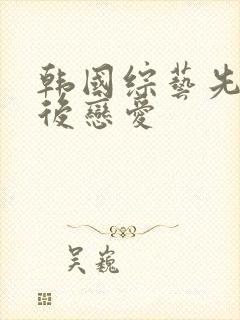 韩國綜藝先
後戀愛
吴巍